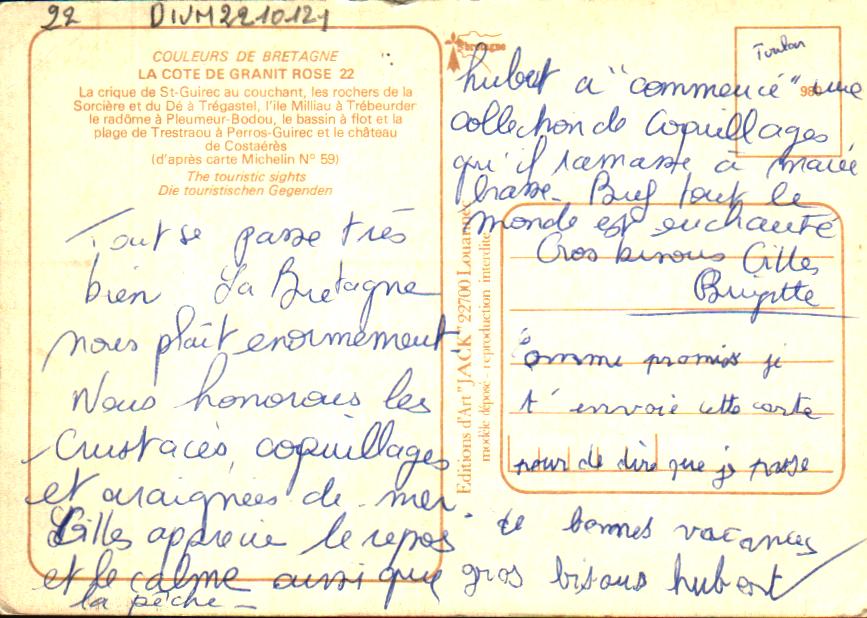 22 DIVM2210121
COULEURS DE BRETAGNE
LA COTE DE GRANIT ROSE 22
La crique de St-Guirec au couchant, les rochers de la
Sorcière et du Dé à Trégastel, l'ile Milliau à Trébeurder
le radôme à Pleumeur-Bodou, le bassin à flot et la
plage de Trestraou à Perros-Guirec et le château
de Costaérès
(d'après carte Michelin N° 59)
The touristic sights
Die touristischen Gegenden
Tout se passe très
bien La Bretagne
nous plaît enormement
Nous honorons les
Crustacés, coquillages
et araignées de mer.
Gilles apprécie le repos
et le calme ainsi que
la pêche -
Editions d'Art "JACK" 22700 Louannec
modèle déposé - reproduction interdite
bretagne
Toutou
98
hubert a "commencé" une
collection de Coquillages
qu'il ramasse à marée
basse. Bref tout le
monde est enchanté
Gros bisous Gilles
Brigitte
Comme promis je
t'envoie cette carte
pour de dire que je passe
de bonnes vacances
gros bisous hubert